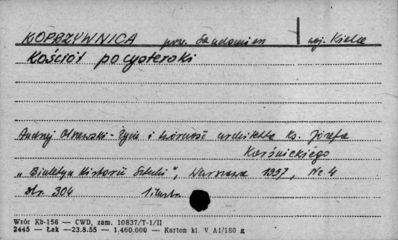 KOPRZYWNICA pow. Sandomierz woj. Kielce
Kościół pocysterski
Andrzej Olszewski - Życie i twórczość architekta Ks. Józefa
Karśnickiego
„Biuletyn Historii Sztuki", Warszawa 1937, Nr. 4
str. 304 1 ilustr.
Wzór Kb-156 — CWD, zam. 10837/T-1/II
2445 — Łak —23.8.55 — 1.460.000 — Karton kl. V A1/180 g